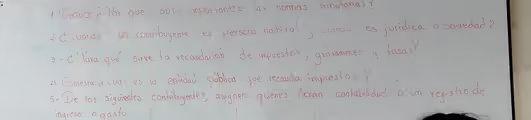 1 ¿ que son las normas
2 ¿Cuando un contribuyente es persona natural, es jurídica o sociedad?
3 - ¿Para qué sirve la recaudación de impuestos, gravamenes y tasas?
4 es la entidad pública que recauda impuestos?
5 - De los siguientes contribuyentes, asigne quienes llevan contabilidad o un registro de
ingreso o gasto